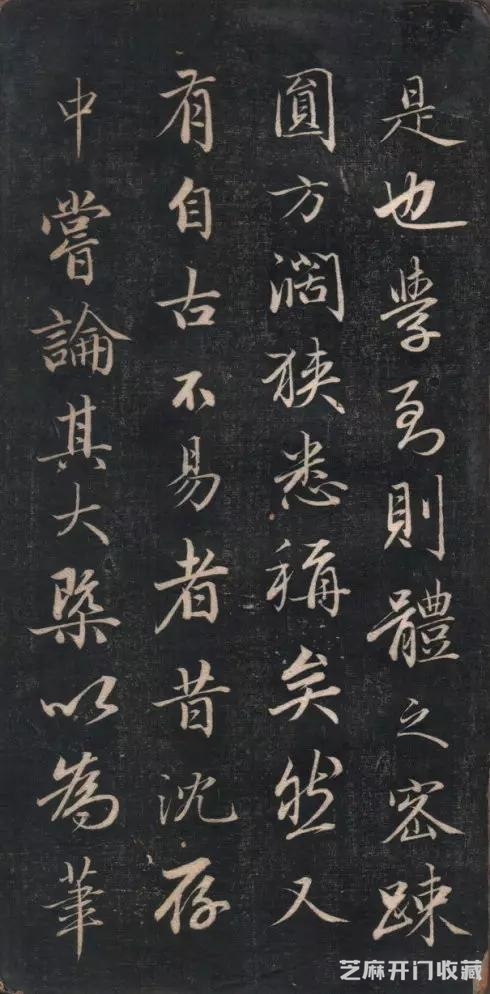 是也學到則體之密踈
圓方濶狹悉稱矣然又
有自古不易者昔沈存
中嘗論其大槩以為筆
芝麻开门收藏